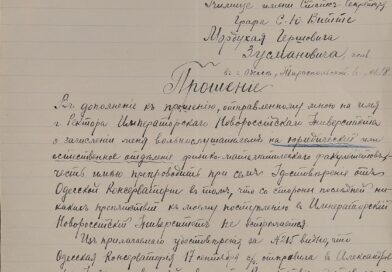 Училище имени Статсъ-Секретаря
Графа С. Ю. Витте
Мордухая Гершовича
Зусмановича,
въ г. Одессѣ,
Прошеніе
Въ дополненіе къ прошенію, отправленному мною на имя
г. Ректора Императорскаго Новороссійскаго Университета
о зачисленіи меня вольнослушателемъ на юридическій или
естественное отдѣленіе физико-математическаго факультетовъ,
честь имѣю препроводить при семъ Удостовѣреніе отъ
Одесской Консерваторіи въ томъ, что со стороны послѣдней ни-
какихъ препятствій къ моему поступленію въ Императорскій
Новороссійскій Университетъ не встрѣчается.
Изъ прилагаемаго удостовѣренія за №15 видно, что
Одесская Консерваторія 17 сентября с/г отправила въ